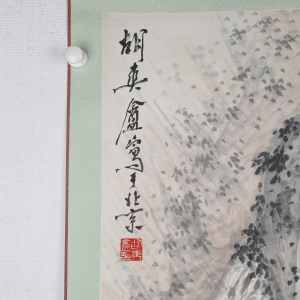 胡爽盦写于北京